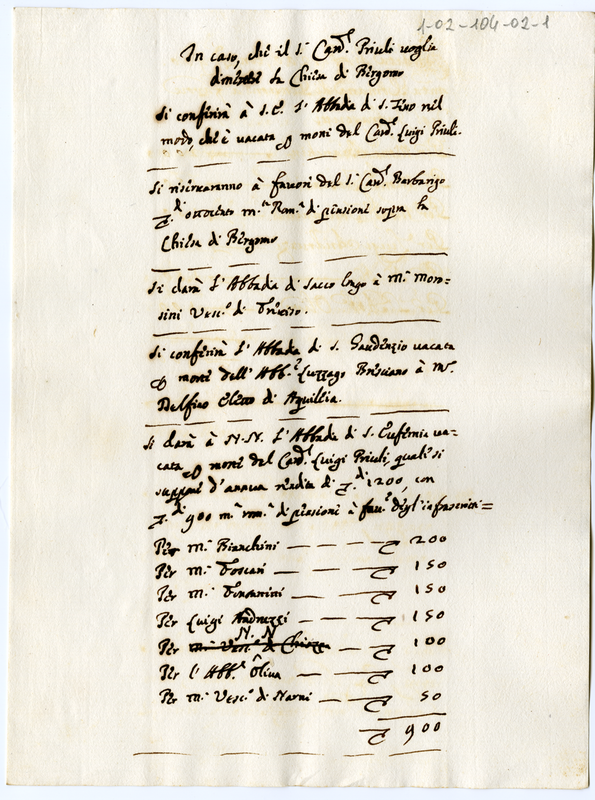 1-02-104-02-1
In caso, che il S.r Card.l Priuli voglia
dimetter la Chiesa di Bergomo
Si conferirà à S.E. l'Abbadia di S. Zeno nel
modo, che è vacata p morte del Card.l Luigi Priuli.
Si riserveranno à favore del S.r Card.l Barbarigo
di ottocento m.ta Rom.a di pensioni sopra la
Chiesa di Bergomo
Si darà l'Abbadia di Sacco lngo à m.r Moro=
sini Vesc.o di Treviso.
Si conferirà l'Abbadia di S. Gaudenzio vacata
p morte dell'Abb.e Luzzago Bresciano à M.r
Delfino Eletto di Aquilleia.
Si darà à N.N. l'Abbadia di S. Eufemia va=
cata p morte del Card.l Luigi Priuli, quale si
suppone d'annua rendita di 1200, con
di 900 m.ta rom.a di pensioni à fav.e degl'infrascritti=
Per m.r Bianchini — — — 200
Per m.r Foscari — — — 150
Per m.r — — — 150
Per Luigi Andruzzi — — 150
N.N.
Per m.r Vesc.o di Chiozza — 100
Per l'Abb.e Oliva — — 100
Per m.r Vesc.o di Narni — — 50
900